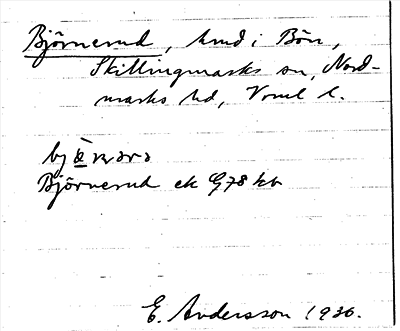 Björnerud, hmd i Bön,
Skillingmarks sn, Nord-
marks hd, Vrml l.
Björnerud ek G78 kb
E. Andersson 1930.